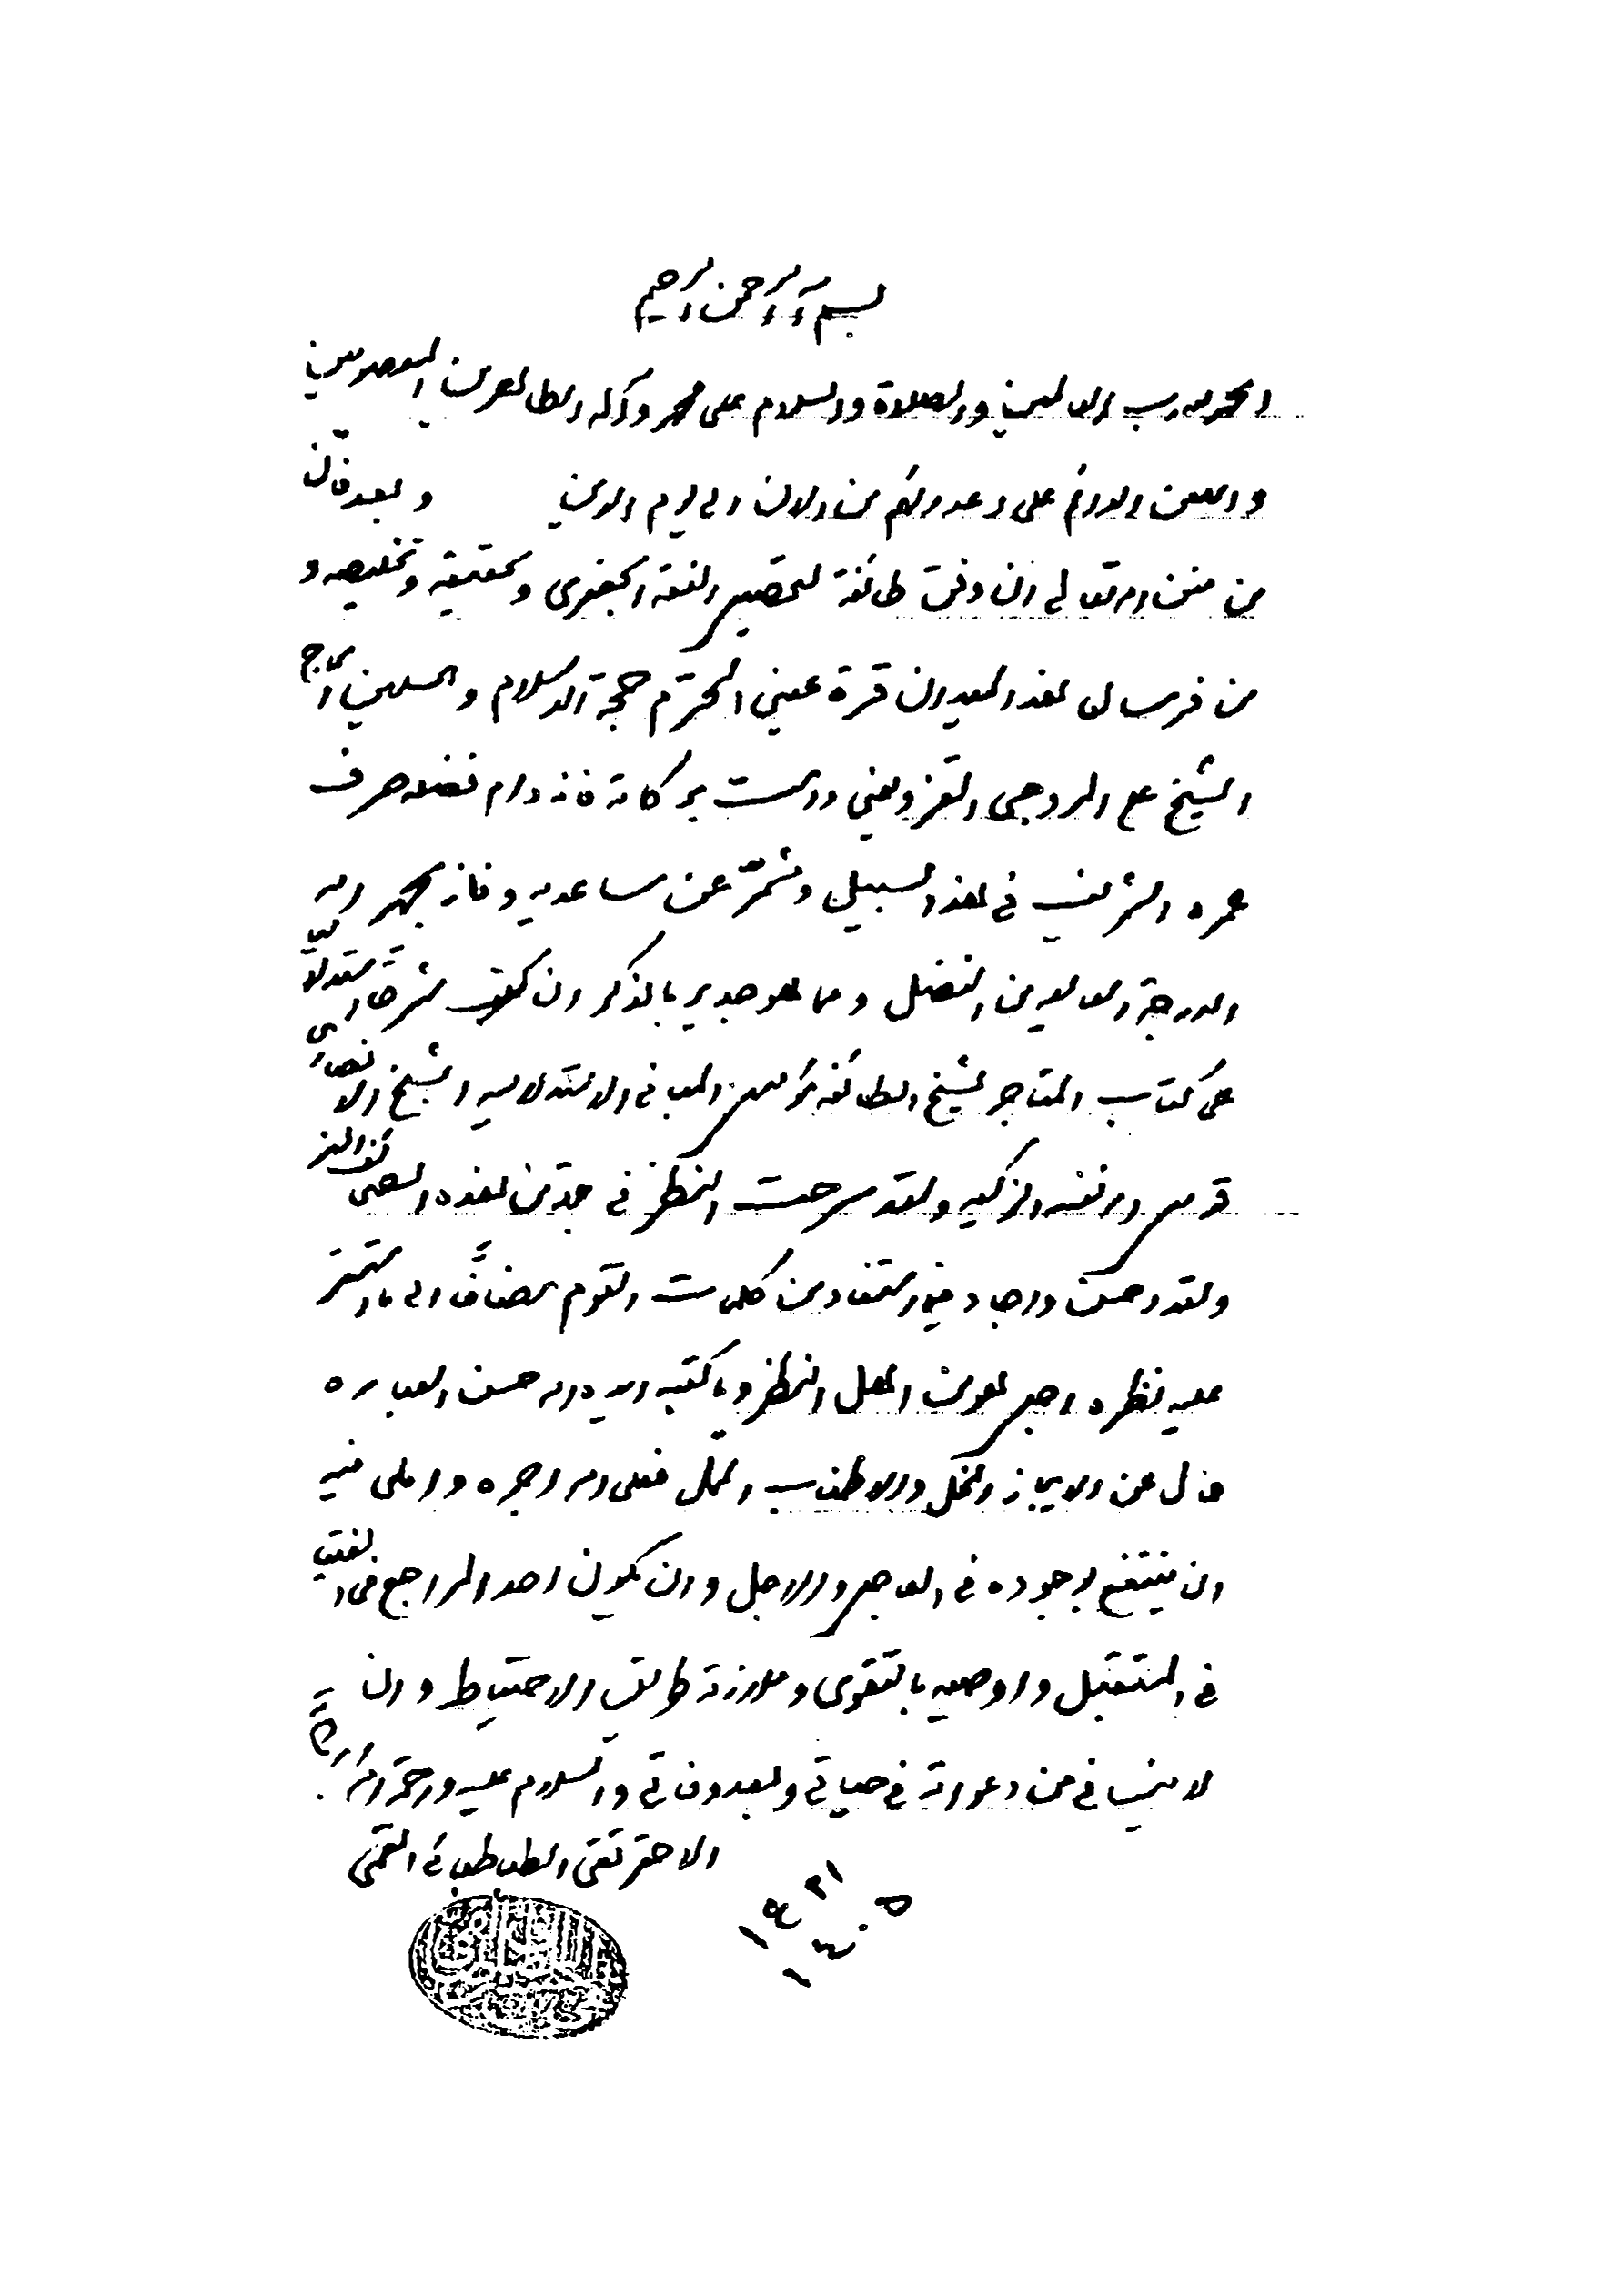 بسم الله الرحمن الرحيم
الحمد لله رب العالمين والصلاة والسلام على محمد وآله الطاهرين المعصومين
واللعن الدائم على اعدائهم من الان الى يوم الدين وبعد فان
من منن الله تعالى ان وفق طائفة لتحصيل الفقه الجعفرى وتحقيقه وتخليصه و
من فرسان هذا الميدان قرة عيني المحترم حجة الاسلام والمسلمين الحاج
الشيخ على المروجى القزوينى دامت بركاته فانه دام فضله صرف
عمره الشريف فى هذا السبيل وشمّر عن ساعديه وفاز بحمد الله
الدرجة العاليه من الفضل ومما هو جدير بالذكر ان كتب شرحاً استدلالياً
على كتاب المتاجر لشيخ الطائفه مؤسس المبانى الاستدلاليه الشيخ الانصارى
قدس الله نفسه الزكيه ولقد سرحت النظر فى جملة من هذه الصحائف الغر
ولقد احسن واجاد فيما استفاد من كلمات القوم مضافاً الى ما استقر
عليه نظره اجل هو من اهل النظر وما كتبه ايده الله حسن العباره
خال عن الايجاز المخل والاطناب الممل فعلى الله اجره واملى فيه
ان ينتفع بوجوده فى العاجل والاجل وان يكون احد المراجع فى الفتيا
فى المستقبل واوصيه بالتقوى وملازمة طريق الاحتياط وان
لا ينسانى من دعواته فى حياتى وبعد وفاتى والسلام عليه ورحمة الله
الاحقر تقى الطباطبائى القمى